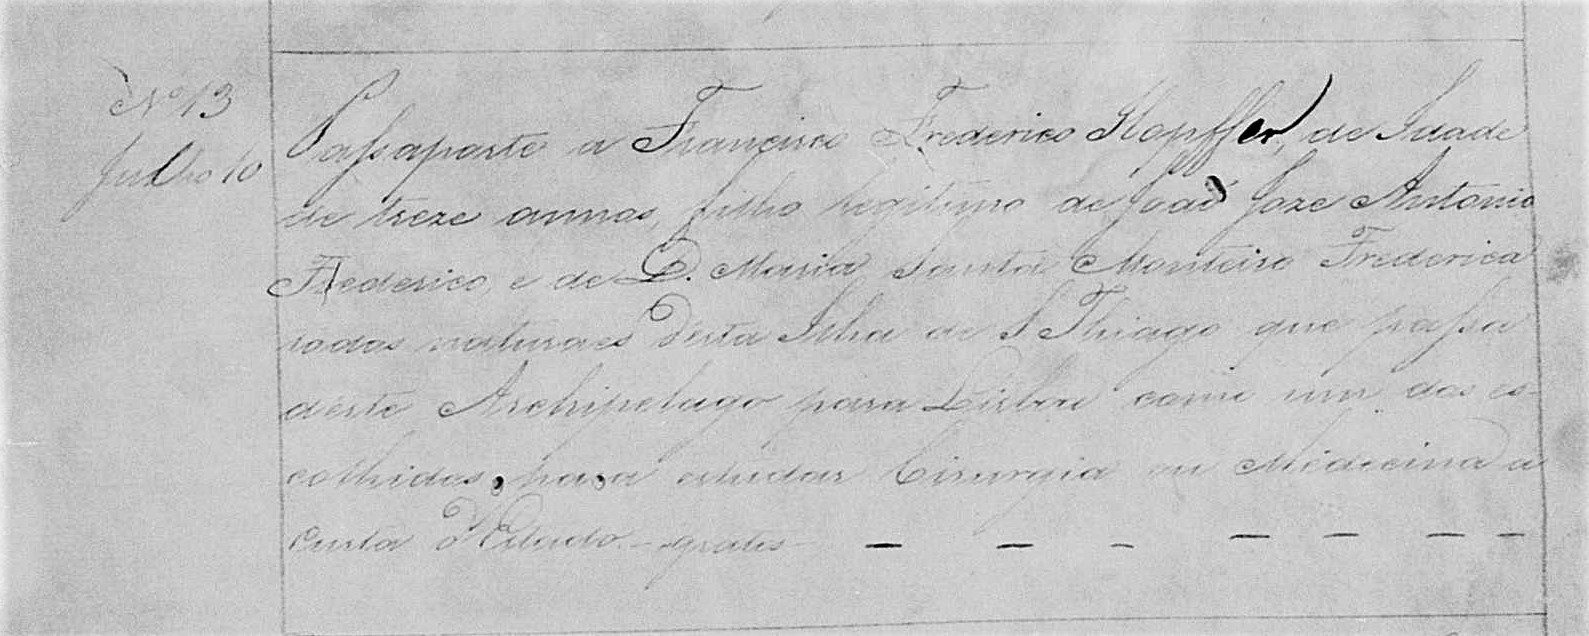 Nº 13
Julho 10
Passaporte a Francisco Frederico Hopffer, de Idade
de treze annos, filho legitimo de João Joze Antonio
Frederico, e de D. Maria Santa Monteiro Frederica
todos naturaes desta Ilha de S Thiago que passa
deste Archipelago para Lisboa como um dos es-
colhidos, para estudar Cirurgia ou Medecina a
custa d'Estado - gratis - - - - - - - -